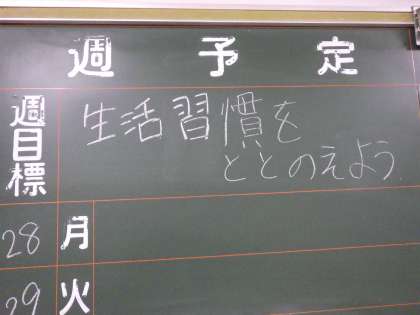 週予定
週目標
生活習慣を
ととのえよう
28 月
29 火